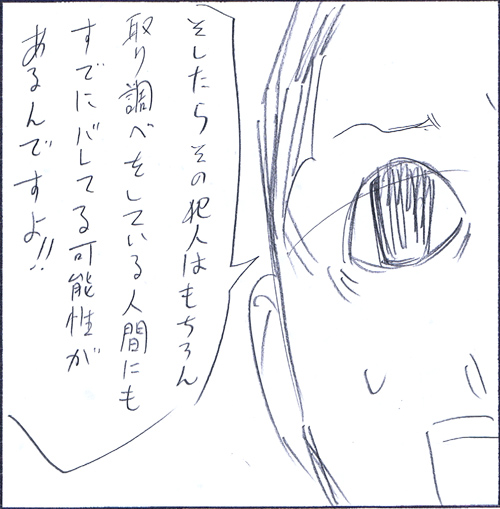 そしたらその犯人はもちろん
取り調べをしている人間にも
すでにバレてる可能性が
あるんですよ!!